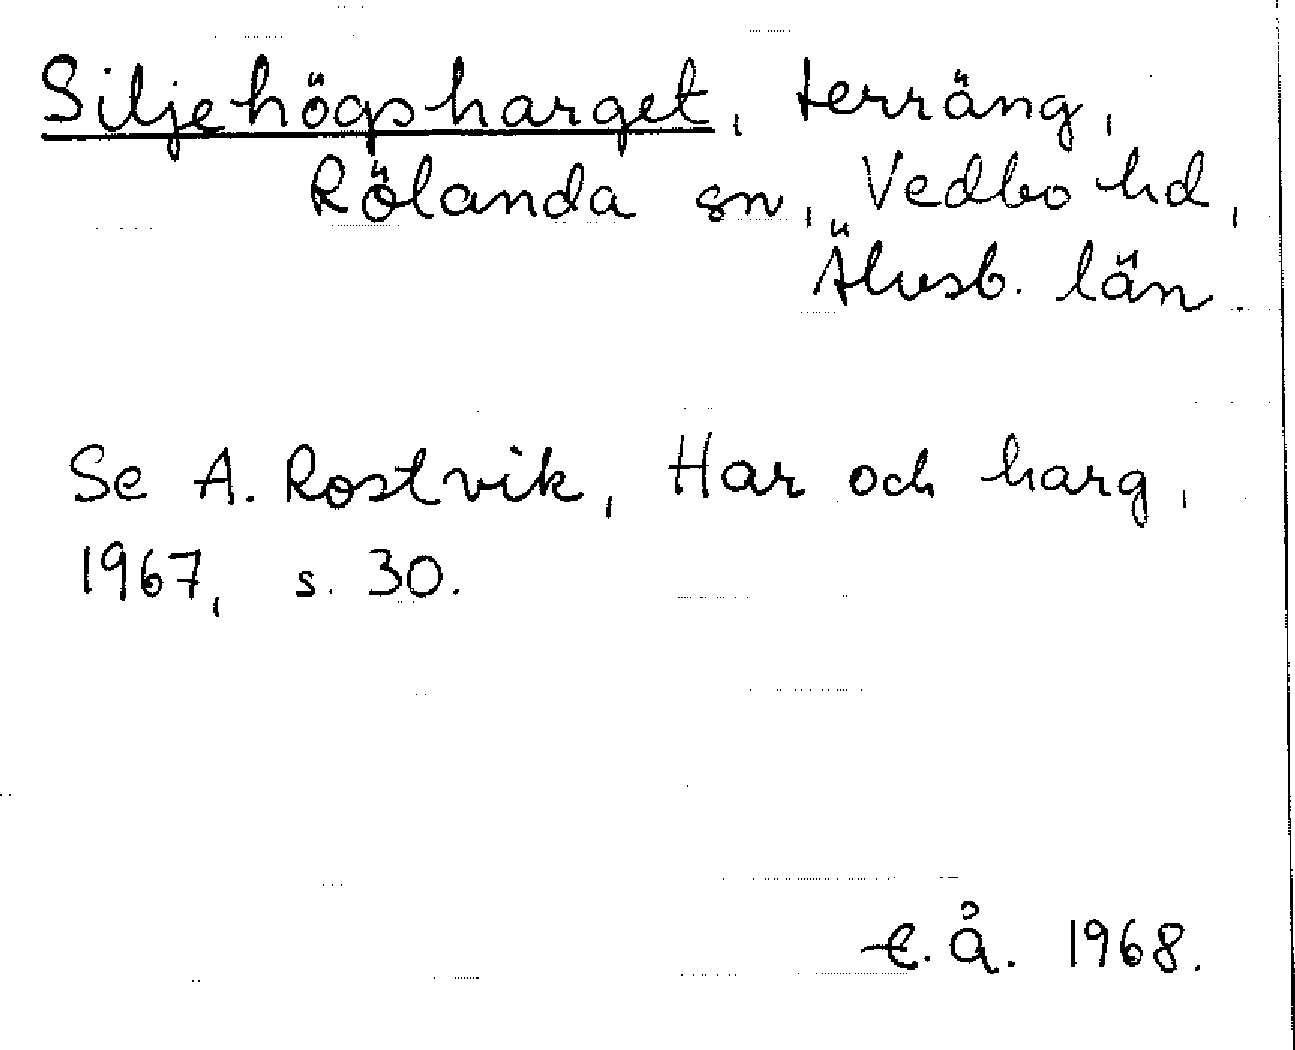 Siljehögsharget, terräng,
Rölanda sn, Vedbo hd,
Älvsb. län.
Se A. Rostvik, Har och harg,
1967, s. 30.
E. Å. 1968.